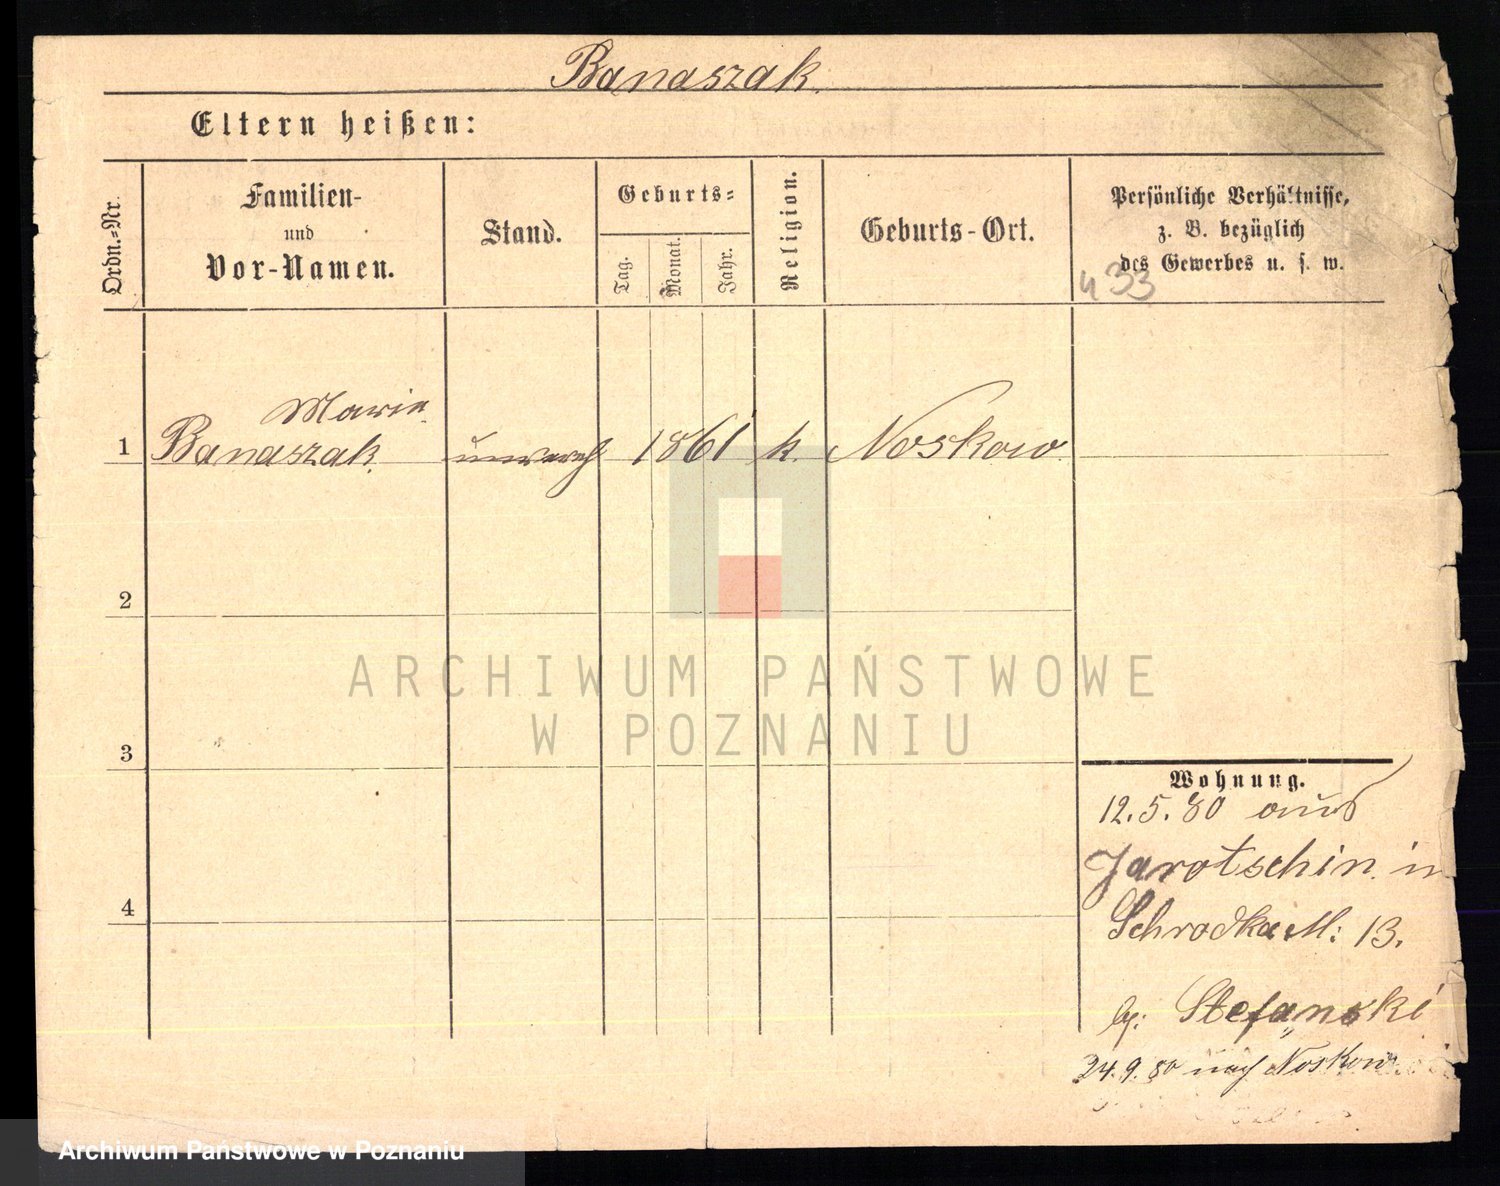 Banaszak.
Eltern heißen:
Ordn.-Nr.
Familien-
und
Vor-Namen.
Stand.
Geburts-
Tag.
Monat.
Jahr.
Religion.
Geburts-Ort.
Persönliche Verhältnisse,
z. B. bezüglich
des Gewerbes u. s. w.
433
Marie
1 Banaszak unverh 1861 k. Noskow
2
3
4
ARCHIWUM PAŃSTWOWE
W POZNANIU
Wohnung.
12.5.80 aus
Jarotschin in
Schrodka M: 13.
by: Stefański
24.9.80 nach Noskow
Archiwum Państwowe w Poznaniu